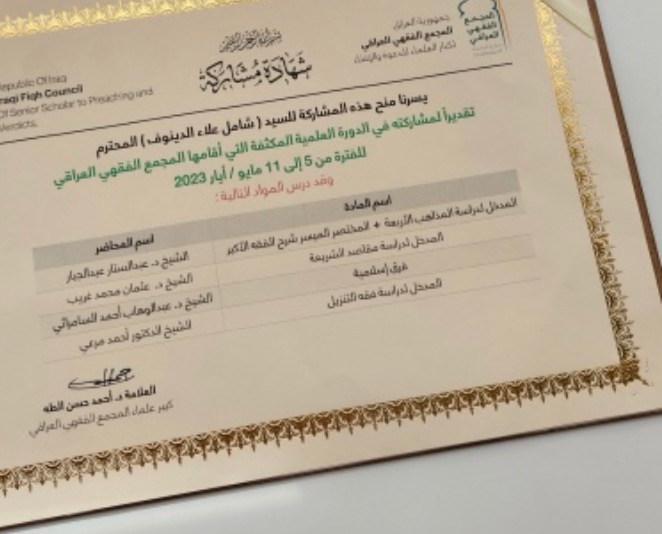 المجمع
الفقهي
العراقي
جمهورية العراق
المجمع الفقهي العراقي
لكبار العلماء للدعوة والإفتاء
Republic Of Iraq
Iraqi Fiqh Council
Of Senior Scholar to Preaching and
Verdicts.
بسم الله الرحمن الرحيم
شهادة مشاركة
يسرنا منح هذه المشاركة للسيد ( شامل علاء الدينوف ) المحترم
تقديراً لمشاركته في الدورة العلمية المكثفة التي أقامها المجمع الفقهي العراقي
للفترة من 5 إلى 11 مايو / أيار 2023
وقد درس المواد التالية :
اسم المادة اسم المحاضر
المدخل لدراسة المذاهب الأربعة + المختصر الميسر شرح الفقه الأكبر الشيخ د. عبدالستار عبدالجبار
المدخل لدراسة مقاصد الشريعة الشيخ د. عثمان محمد غريب
فرق إسلامية الشيخ د. عبدالوهاب أحمد السامرائي
المدخل لدراسة فقه التنزيل الشيخ الدكتور أحمد مرعي
العلامة د. أحمد حسن الطه
كبير علماء المجمع الفقهي العراقي